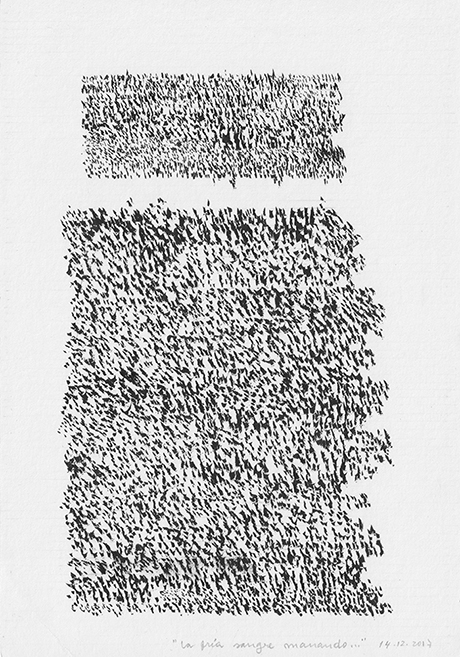 "La fría sangre manando..." 14.12.2017